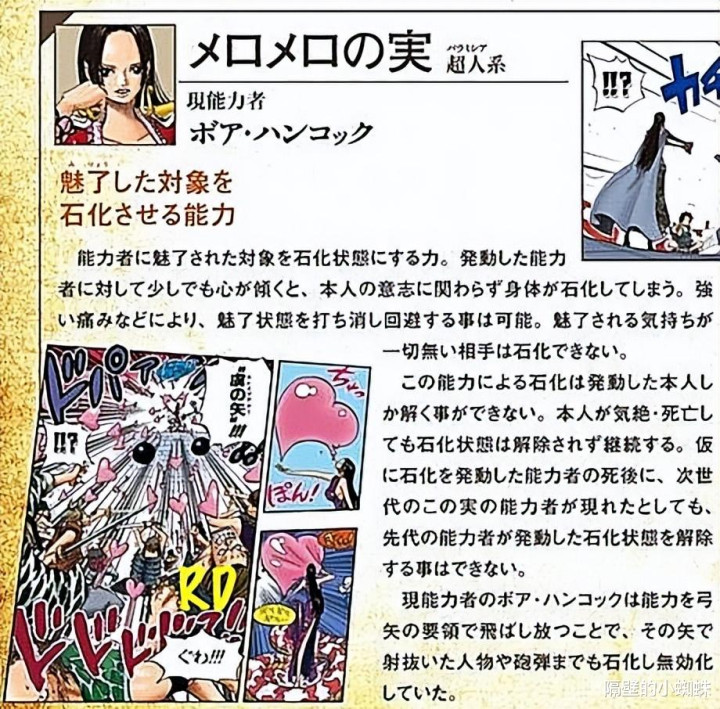 メロメロの実
パラミシア
超人系
現能力者
ボア・ハンコック
みりょう
魅了した対象を
石化させる能力
!!?
能力者に魅了された対象を石化状態にする力。発動した能力
者に対して少しでも心が傾くと、本人の意志に関わらず身体が石化してしまう。強
い痛みなどにより、魅了状態を打ち消し回避する事は可能。魅了される気持ちが
一切無い相手は石化できない。
この能力による石化は発動した本人し
か解く事ができない。本人が気絶・死亡し
ても石化状態は解除されず継続する。仮
に石化を発動した能力者の死後に、次世
代のこの実の能力者が現れたとしても、
先代の能力者が発動した石化状態を解除
する事はできない。
現能力者のボア・ハンコックは能力を弓
矢の要領で飛ばし放つことで、その矢で
射抜いた人物や砲弾までも石化し無効化
していた。
ドパァ
"虜の矢"!!!
!!?
ちゅっ
ぽん!
RD
ドドドドッ
ぐわ!!!
隔壁的小蜘蛛